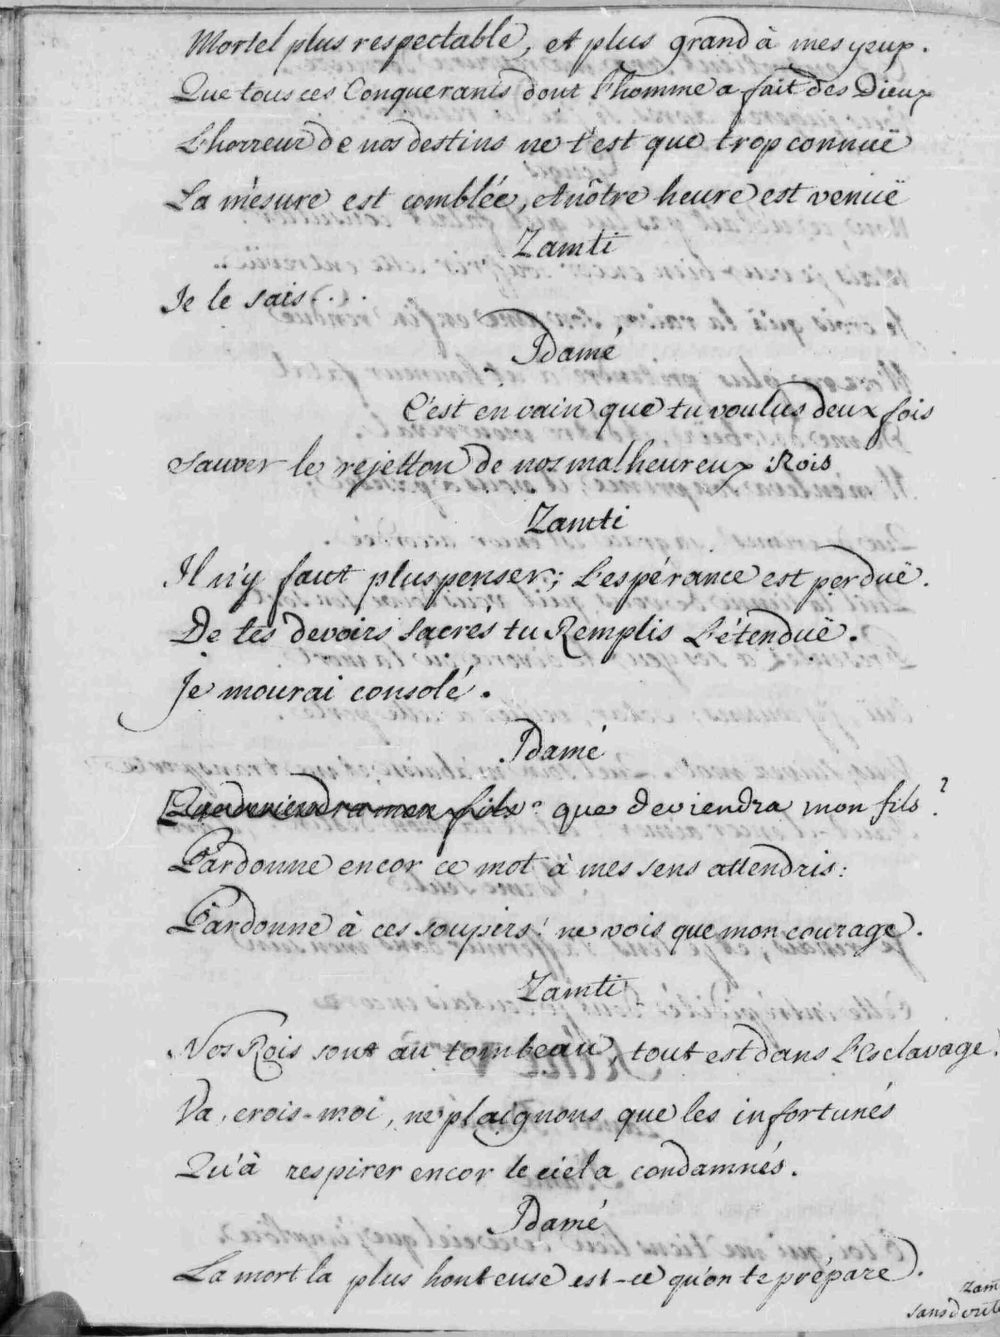 Mortel plus respectable, et plus grand à mes yeux.
Que tous ces Conquerants dont l'homme a fait des Dieux
L'horreur de nos destins ne t'est que trop connuë
La mésure est comblée, et nôtre heure est venuë
Zamti
Je le sais....
Idamé
C'est en vain que tu voulus deux fois
sauver le rejetton de nos malheureux Rois
Zamti
Il n'y faut plus penser; L'espérance est perduë.
De tes devoirs sacrés tu Remplis L'étenduë.
Je mourai consolé.
Idamé
Que deviendra mon fils que deviendra mon fils?
Pardonne encor ce mot à mes sens attendris:
Pardonne à ces soupirs! ne vois que mon courage.
Zamti
Nos Rois sont au tombeau, tout est dans L'Esclavage.
Va, crois-moi, ne plaignons que les infortunés
Qu'à respirer encor le ciel a condamnés.
Idamé
La mort la plus honteuse est-ce qu'on te prépare.
Zam
sans doute